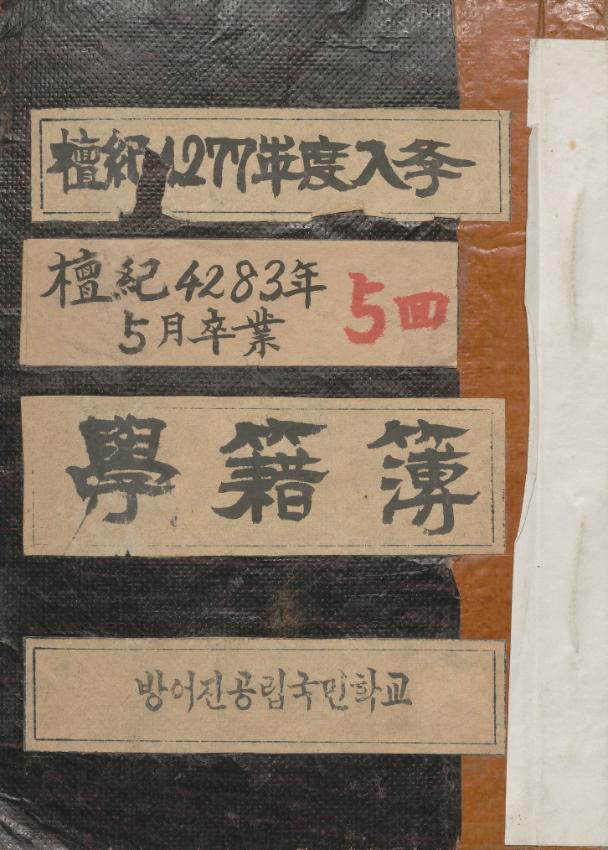 檀紀4277年度入斈
檀紀4283年
5月卒業
5回
學籍簿
방어진공립국민학교